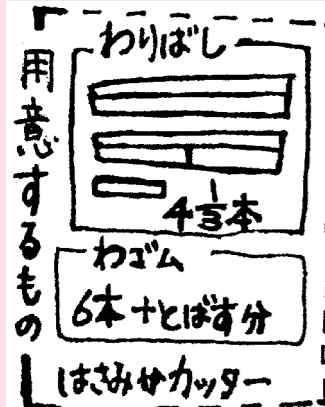 用意するもの
わりばし
4 1/3本
わゴム
6本+とばす分
はさみやカッター